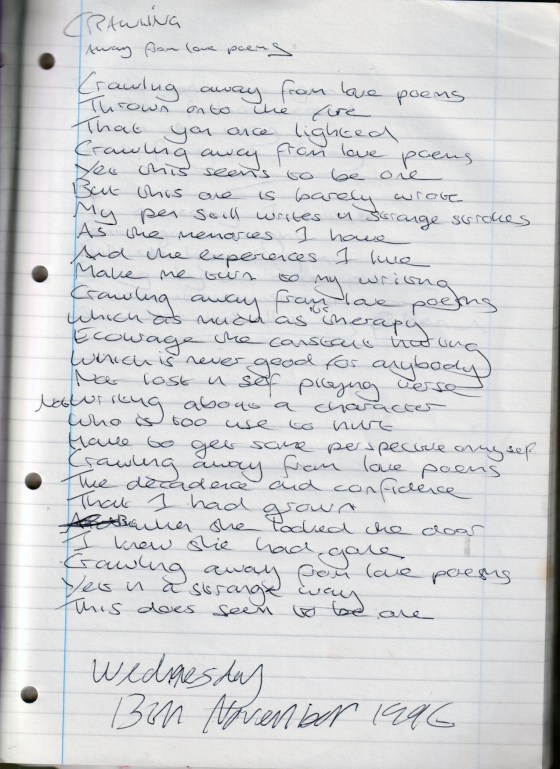 CRAWLING
Away from love poems
Crawling away from love poems
Thrown onto the fire
That you once lighted
Crawling away from love poems
Yet this seems to be one
But this one is barely wrote
My pen still writes in strange strokes
As the memories I have
And the experiences I live
Make me turn to my writing
Crawling away from love poems
Which as much as its therapy
Encourage the constant hurting
Which is never good for anybody
Not lost in self playing verse
Not Writing about a character
Who is too use to hurt
Have to get some perspective on myself
Crawling away from love poems
The decadence and confidence
That I had grown
But when she locked the door
I knew she had gone
Crawling away from love poems
Yet in a strange way
This does seem to be one
Wednesday
13th November 1996